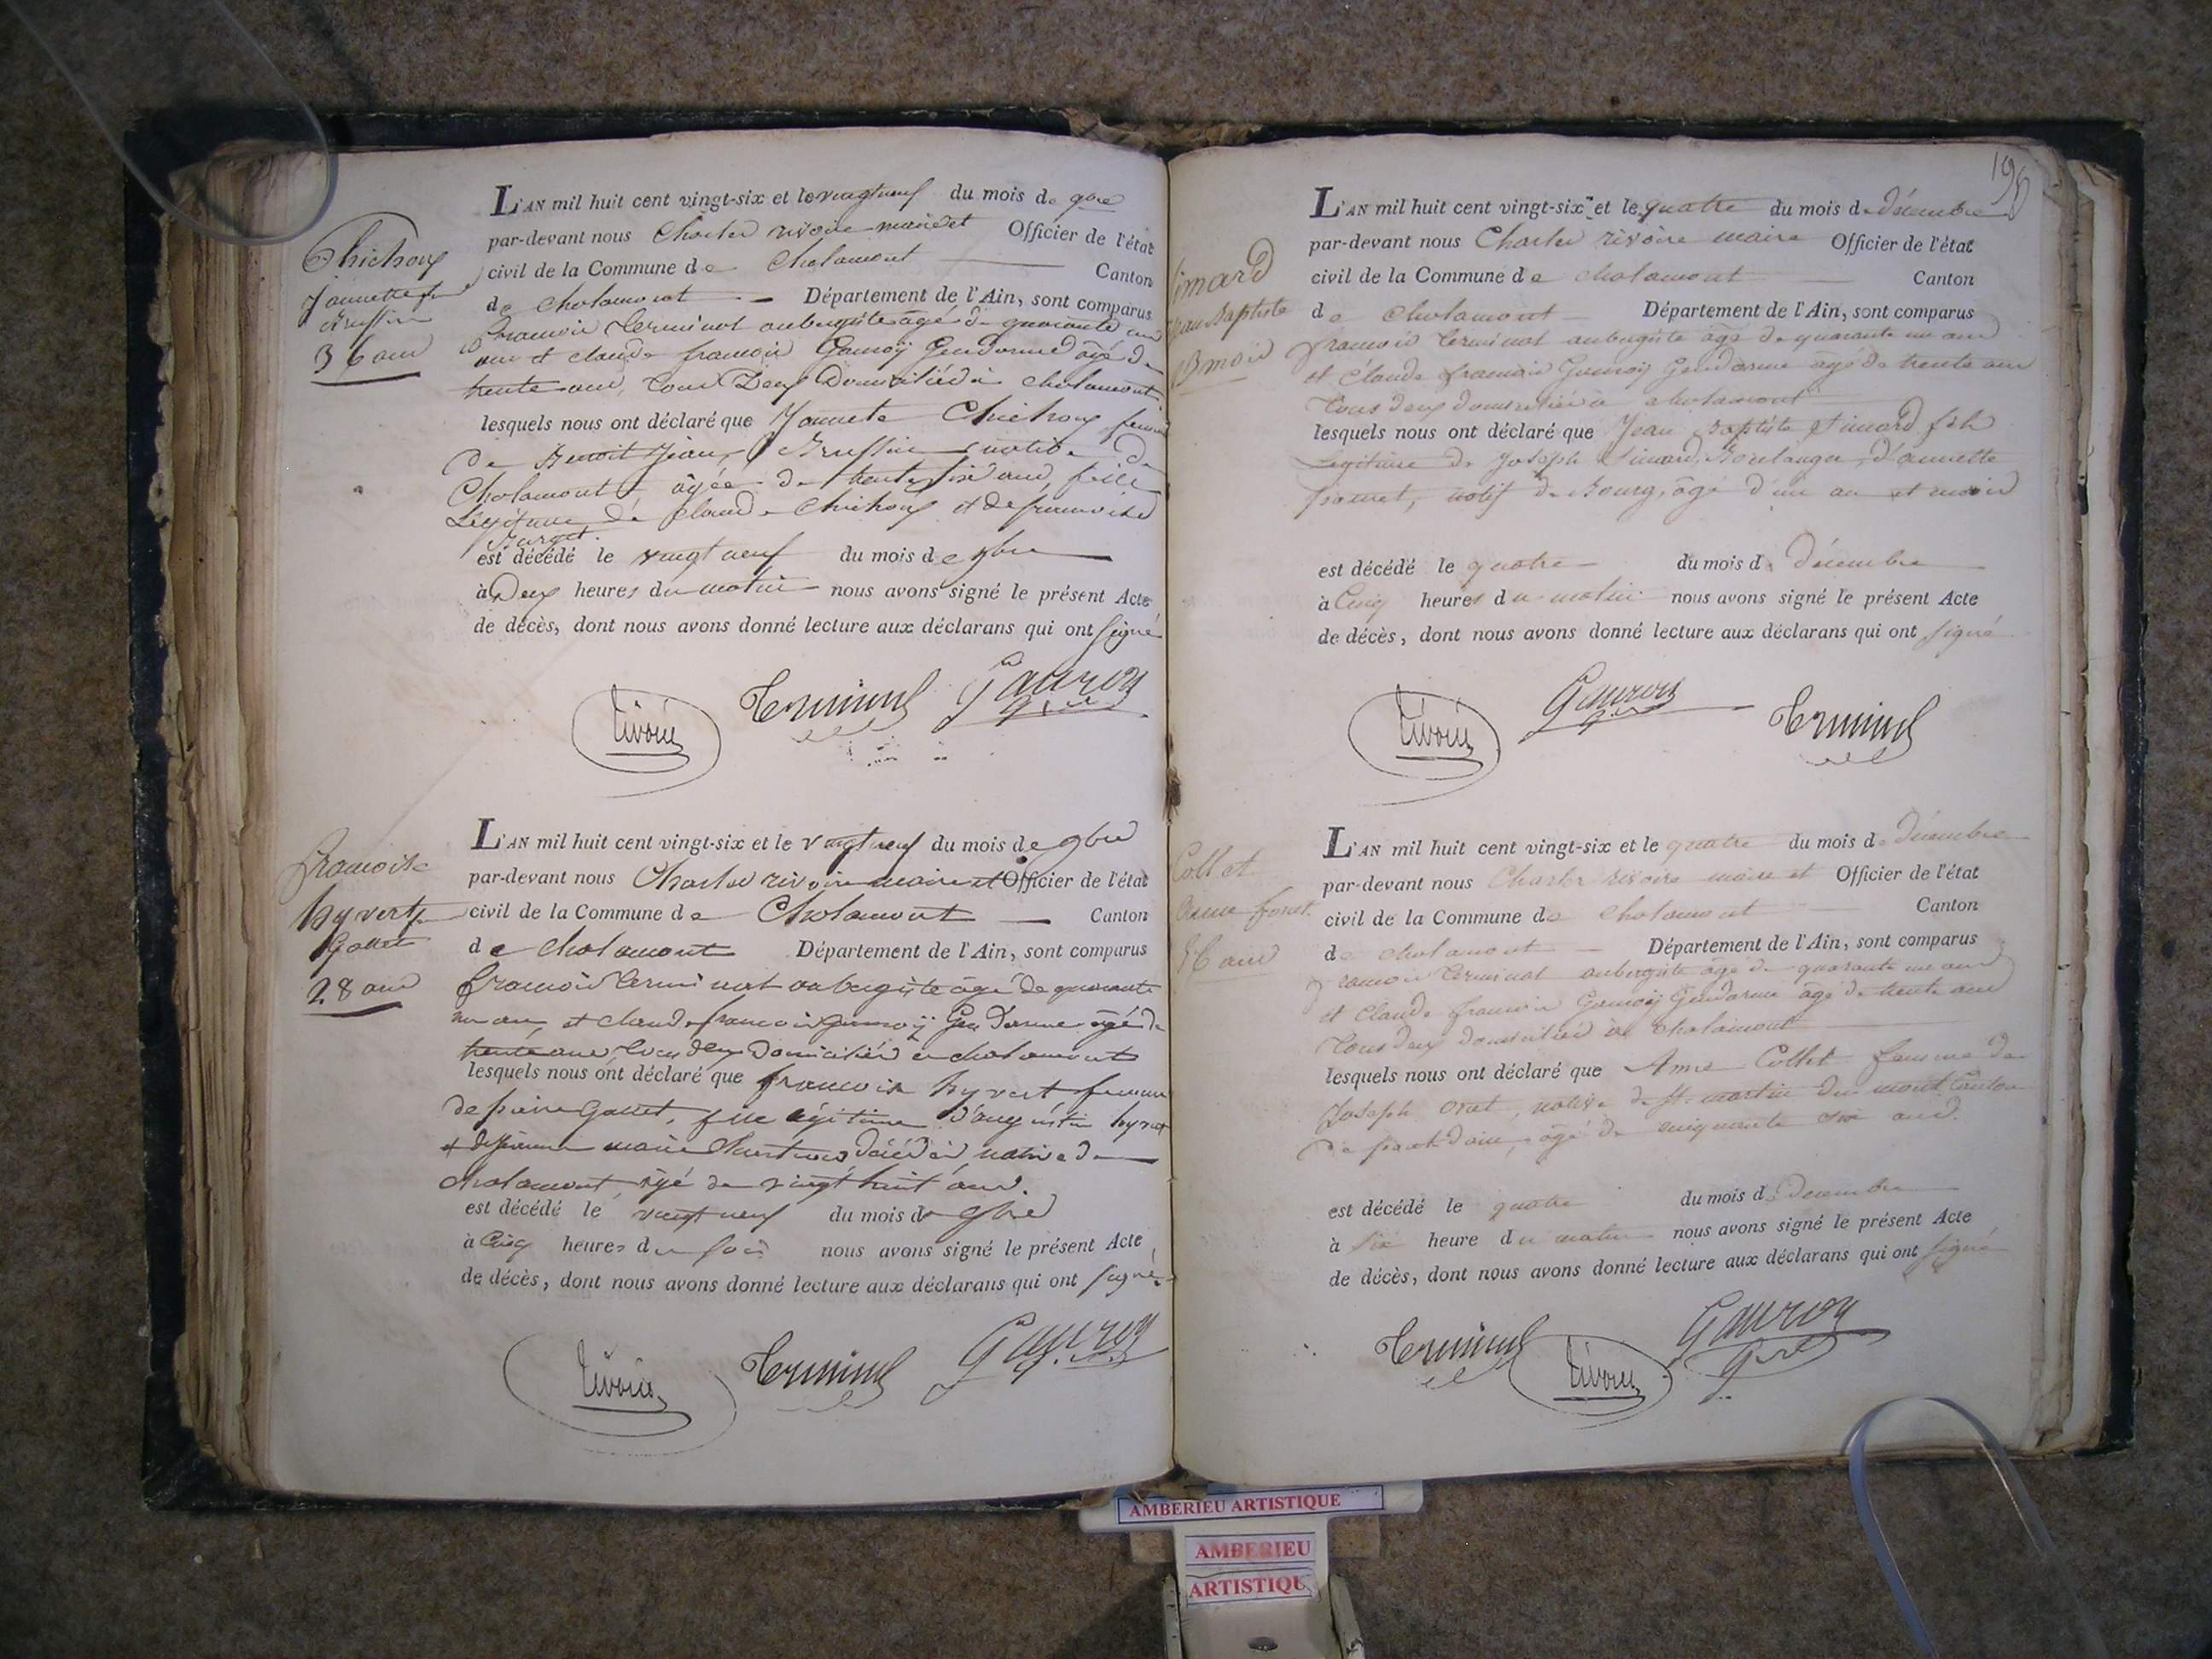 Chichoux
Jannette fe
Bruffin
36 ans
L'AN mil huit cent vingt-six et le vingt neuf du mois de 9bre
par-devant nous Charles rivoire maire et Officier de l'état
civil de la Commune de Chalamont Canton
de Chalamont Département de l'Ain, sont comparus
francois Terminet aubergiste âgé de quarante un
ans et claude francois Gauroy Gendarme âgé de
trente ans, tous Deux Domiciliés à chalamont
lesquels nous ont déclaré que Jannete Chichoux femme
de Benoit Jean Bruffin native de
Chalamont âgée de trente six ans, fille
Légitime de claude Chichoux et de francoise
est décédé le vingt neuf du mois de 9bre
à Deux heures du matin nous avons signé le présent Acte
de décès, dont nous avons donné lecture aux déclarans qui ont signé
Rivoire Terminet Gauroy
francoise
hyvert fe
Gallet
28 ans
L'AN mil huit cent vingt-six et le vingt neuf du mois de 9bre
par-devant nous Charles rivoire maire et Officier de l'état
civil de la Commune de Chalamont Canton
de Chalamont Département de l'Ain, sont comparus
francois Terminet aubergiste âgé de quarante
un an, et claude francois Gauroy Gendarme âgé de
trente ans, tous deux Domiciliés à chalamont
lesquels nous ont déclaré que francoise hyvert femme
de pierre Gallet, fille légitime d'augustin hyvert
et marie décédés native de
chalamont, âgé de vingt huit ans.
est décédé le vingt neuf du mois de 9bre
à Cinq heures du soir nous avons signé le présent Acte
de décès, dont nous avons donné lecture aux déclarans qui ont signé
Rivoire Terminet Gauroy
198
Simard
Jean Baptiste
13 mois
L'AN mil huit cent vingt-six et le quatre du mois de Décembre
par-devant nous Charles rivoire maire Officier de l'état
civil de la Commune de chalamont Canton
de Chalamont Département de l'Ain, sont comparus
francois Terminet aubergiste âgé de quarante un ans
et Claude francois Gauroy Gendarme âgé de trente ans
tous deux domiciliés à chalamont
lesquels nous ont déclaré que Jean Baptiste Simard fils
Legitime de Joseph Simard, Boulanger, d'annette
natif de Bourg, âgé d'un an et mois
est décédé le quatre du mois de Décembre
à Cinq heures du matin nous avons signé le présent Acte
de décès, dont nous avons donné lecture aux déclarans qui ont signé
Rivoire Gauroy Terminet
Collet
Anne
56 ans
L'AN mil huit cent vingt-six et le quatre du mois de Décembre
par-devant nous Charles rivoire maire et Officier de l'état
civil de la Commune de Chalamont Canton
de chalamont Département de l'Ain, sont comparus
francois Terminet aubergiste âgé de quarante un ans
et Claude francois Gauroy Gendarme âgé de trente ans
tous deux domiciliés à Chalamont
lesquels nous ont déclaré que Anne Collet femme de
Joseph native de St. martin du mont Canton
de pont d'ain, âgé de cinquante six ans.
est décédé le quatre du mois de Décembre
à six heure du matin nous avons signé le présent Acte
de décès, dont nous avons donné lecture aux déclarans qui ont signé
Terminet Rivoire Gauroy
AMBERIEU ARTISTIQUE
AMBERIEU
ARTISTIQU